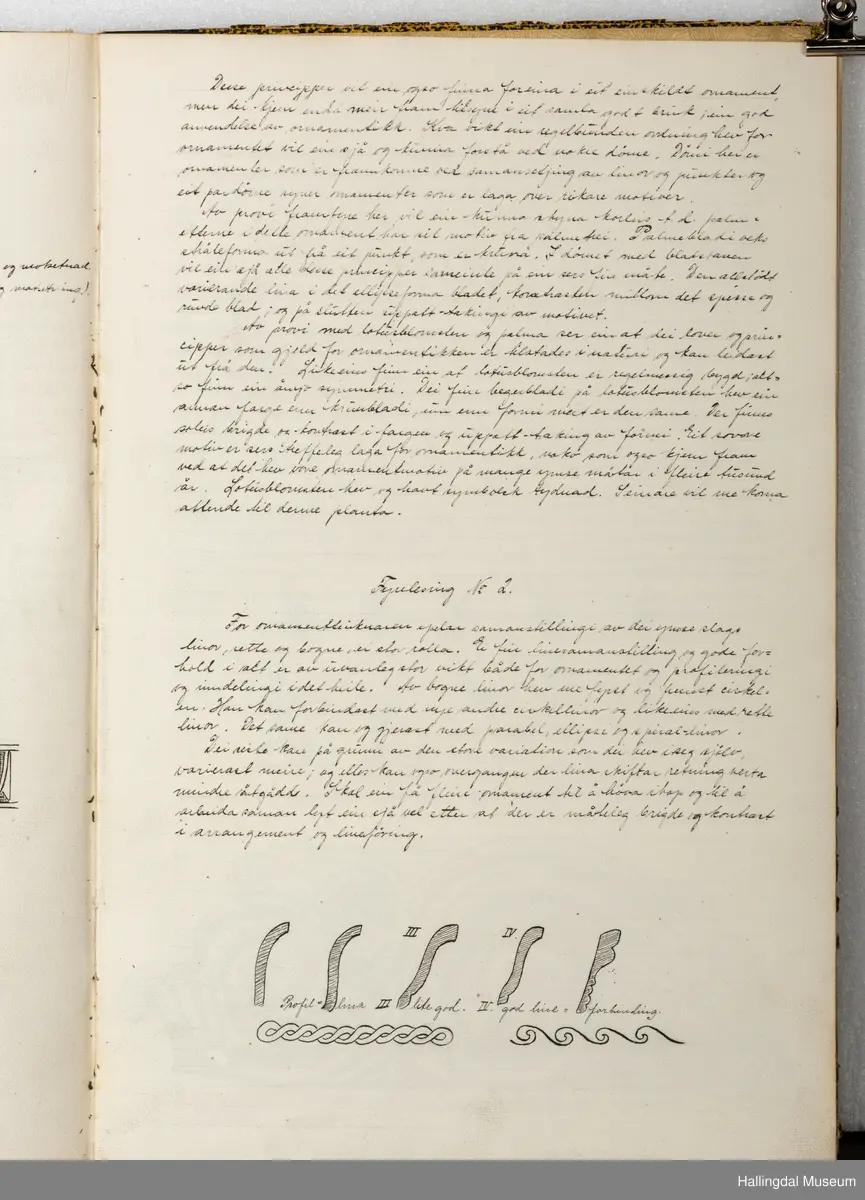 Desse principper vil ein ogso finna foreina i eit einskildt ornament,
men dei kjem enda meir fram tilsyne i eit samla godt bruk, ein god
anvendelse av ornamentikk. Kva vikt ein regelbunden ordning hev for
ornamentet vil ein sjå og kunna forstå ved nokre døme. Dömi her er
ornamenter som er framkomne ved samansetjing av linor og punkter og
eit par döme syner ornamenter som er laga over rikare motiver.
Av provi framfyre her vil ein kunna skyna korleis t.d. palm=
etterne i dette ornament har sit motiv fra palmetrei. Palmebladi veks
stråleforma ut frå eit punkt, som er
I dömet med bladstaven
vil ein sjå alle desse principper sameinte på ein sers fin måte. Den allstödt
varierande lina i det ellipseforma bladet, kontrasten millom det spisse og
runde blad, og på slutten uppatt-takinge av motivet.
Av provi med lotusblomsten og palma ser ein at dei lover og prin-
cipper som gjeld for ornamentikken er i naturi og kan leidast
ut frå den. Likeeins finn ein at lotusblomsten er regelmessig bygd, alt=
so finn ein ånyo symmetri. Dei fine begerbladi på lotusblomsten hev ein
annan farge enn krunbladi, um enn formi mest er den same. Der finns
soleis brigde og kontrast i fargen og uppatt-taking av formi. Eit sovore
motiv er sers treffeleg laga for ornamentikk, noko som ogso kjem fram
ved at det hev vore ornamentmotiv på mange ymse måtar i fleire tusund
år. Lotusblomsten hev og havt symbolsk tydnad. Seinare vil me koma
attende til denne planta.
Fyrelesing № 2.
For ornamentteiknaren spelar samanstillingi av dei ymse slags
linor, rette og bogne, ei stor rolla. Ei fin linesamanstilling og gode for=
hold i alt er av uvanleg stor vikt både for ornamentet og profileringi
og inndelingi i det heile. Av bogne linor hev me fyrst og fremst cirkel-
en. Han kan forbindast med mye andre cirkellinor og likeeins med rette
linor. Det same kan og gjerast med parabel, ellipse og spiral-linor.
Dei siste kan på grunn av den store variation som dei hev i seg sjölv,
varierast meire; og elles kan ogso overgangen der lina skiftar retning verta
mindre Skal ein få fleire ornament til å höva ihop og til å
arbeida saman lyt ein sjå vel etter at der er måteleg brigde og kontrast
i arrangement og lineföring.
III IV.
Profil= lina III lite god. IV. god line= forbinding.
og
Hallingdal Museum